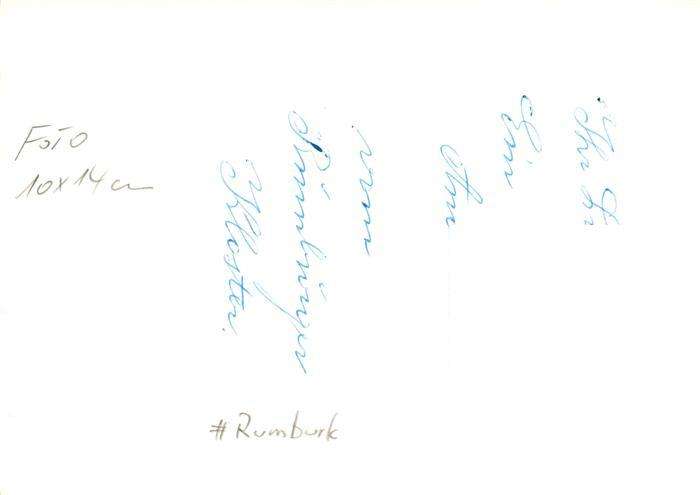 Foto
10x14 cm
Ihr
Ein
vom
Rumburger
Kloster.
#Rumburk